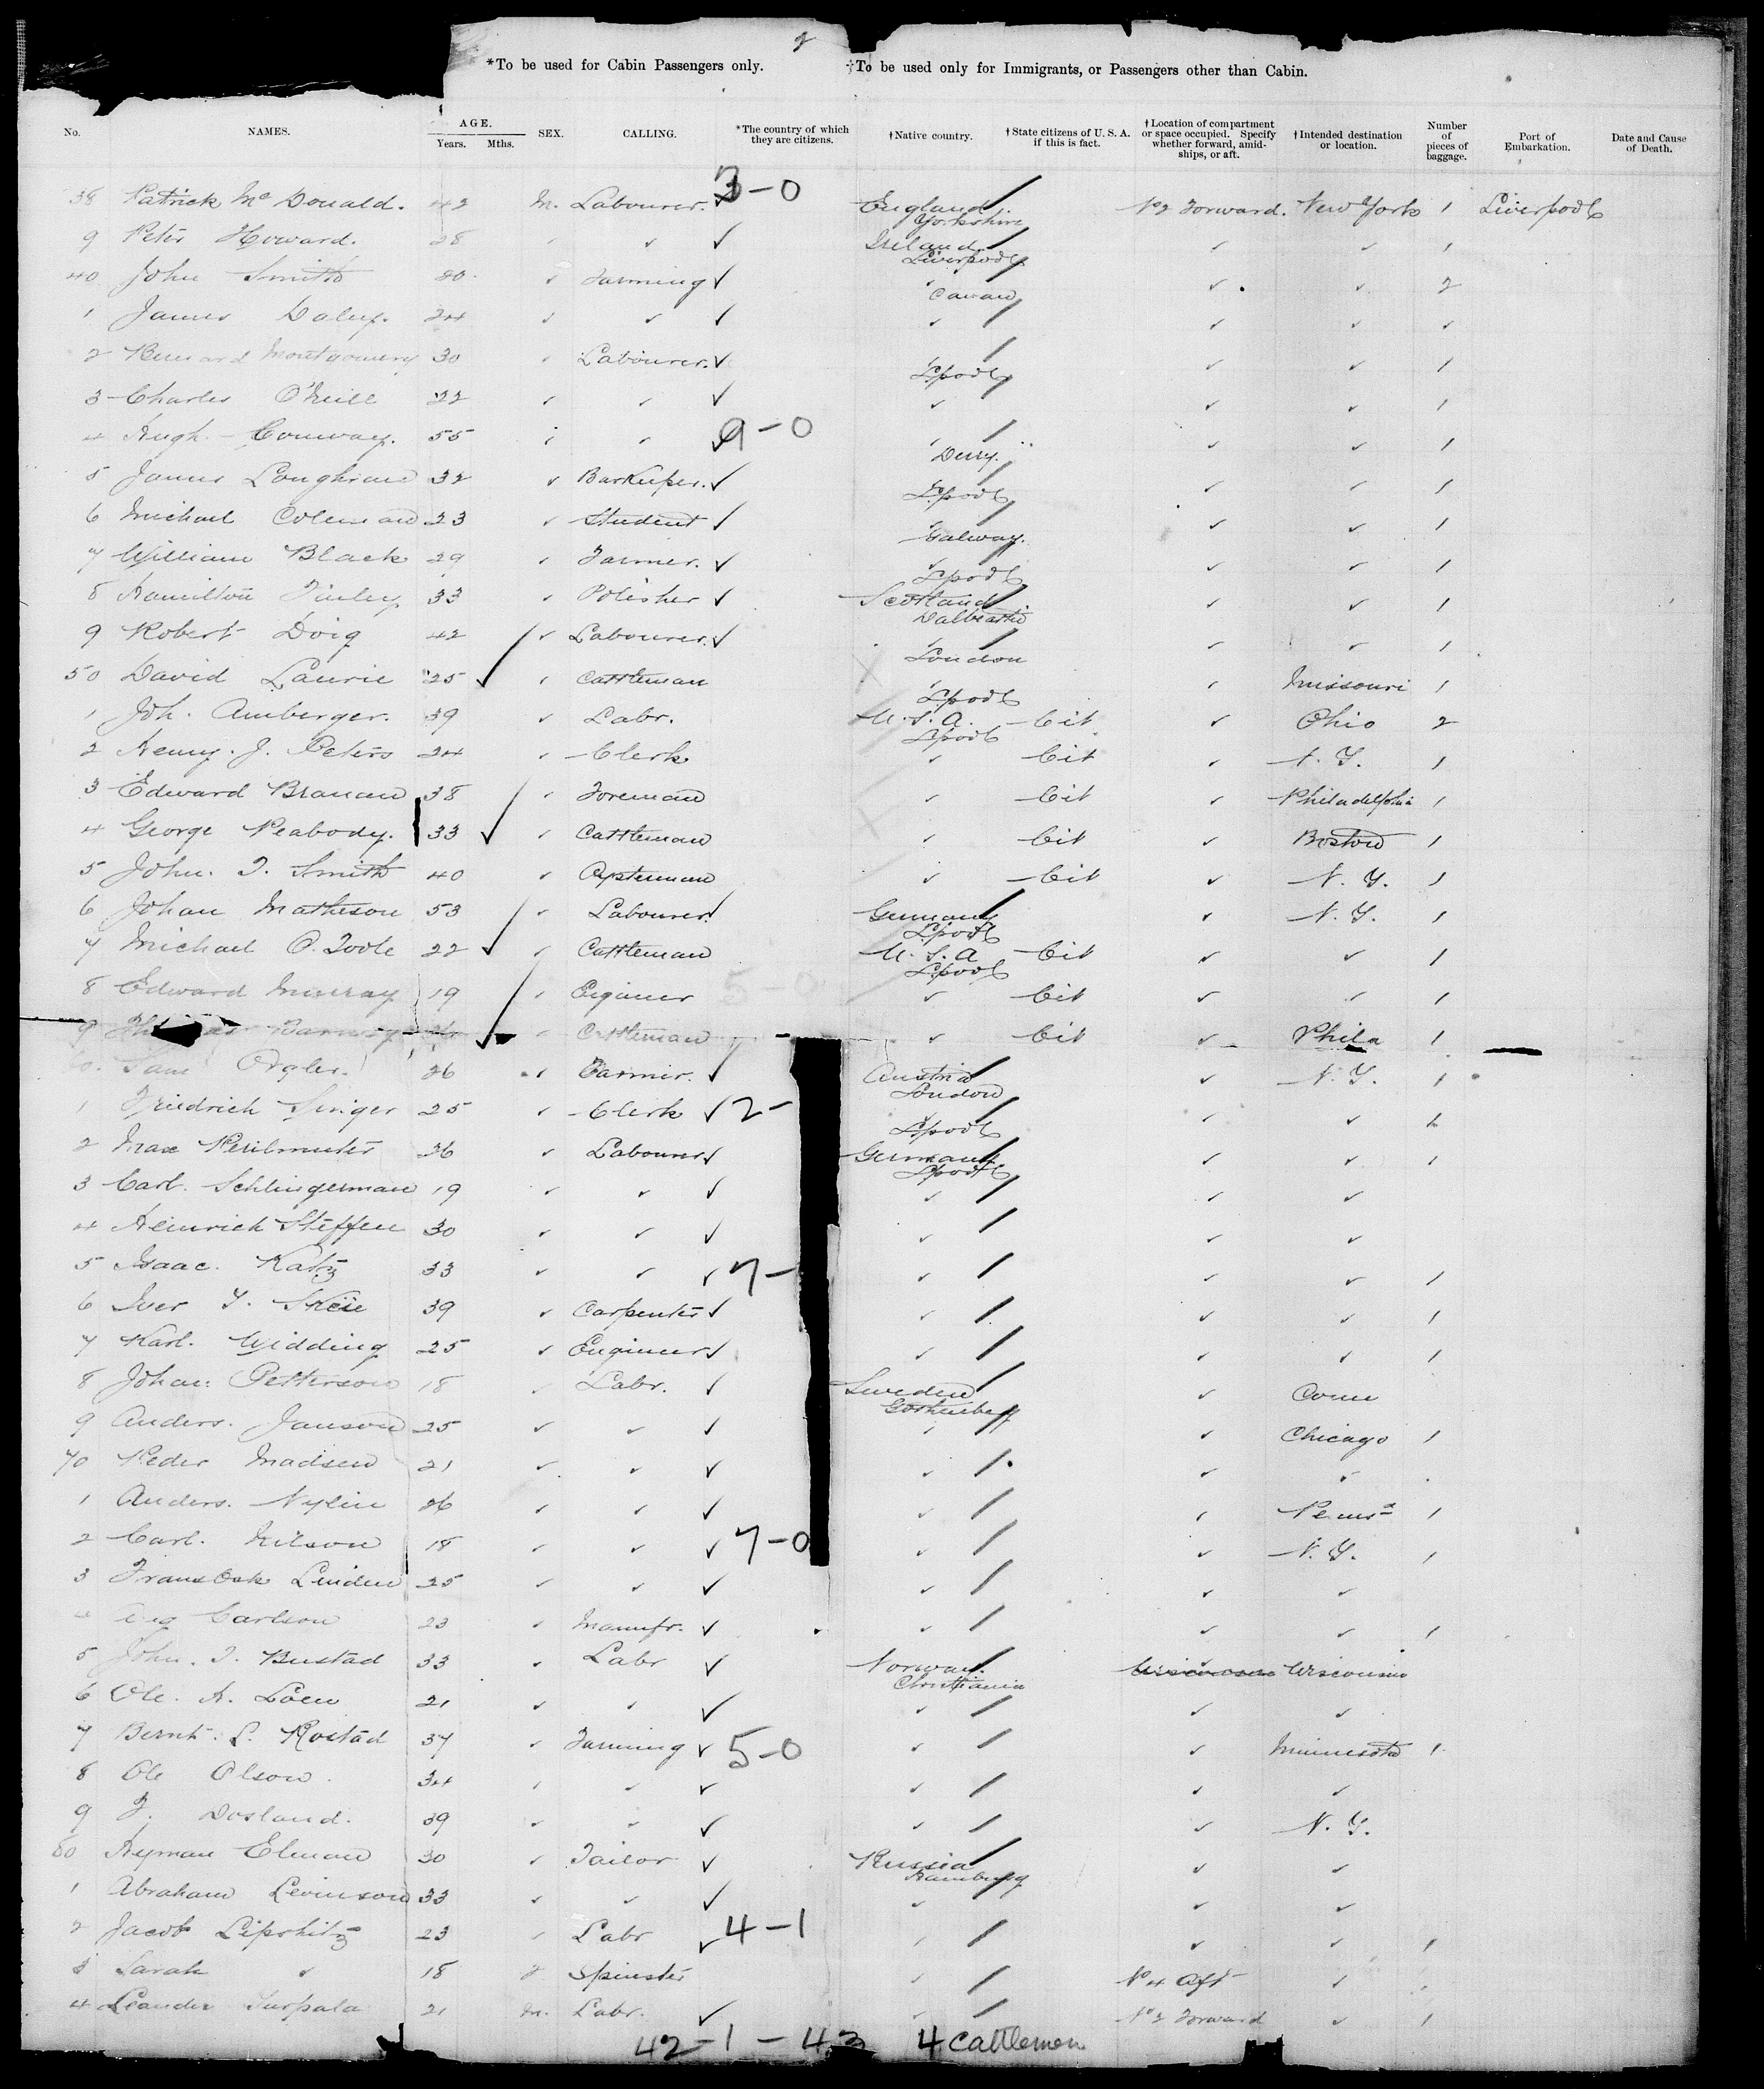 2
*To be used for Cabin Passengers only. †To be used only for Immigrants, or Passengers other than Cabin.
No. NAMES. AGE. Years. Mths. SEX. CALLING. *The country of which they are citizens. †Native country. †State citizens of U. S. A. if this is fact. †Location of compartment or space occupied. Specify whether forward, amid-ships, or aft. †Intended destination or location. Number of pieces of baggage. Port of Embarkation. Date and Cause of Death.
38 Patrick McDonald. 42 M. Labourer. ✓ 3-0 England Yorkshire No 2 Forward. New York 1 Liverpool
9 Peter Howard. 28 ✓ ✓ ✓ Ireland Liverpool ✓ ✓ 1
40 John Smith 20 ✓ Farming ✓ ✓ Cavan ✓ ✓ 2
1 James Daley. 24 ✓ ✓ ✓ ✓ ✓ ✓ ✓
2 Bernard Montgomery 30 ✓ Labourer. ✓ ✓ Lpool ✓ ✓ 1
3 Charles O'Neill 22 ✓ ✓ ✓ ✓ ✓ ✓ 1
4 Hugh Conway. 55 ✓ ✓ ✓ 9-0 ✓ Derry. ✓ ✓ 1
5 James Loughran 32 ✓ Barkeeper. ✓ ✓ Lpool ✓ ✓ 1
6 Michael Coleman 23 ✓ Student ✓ ✓ Galway. ✓ ✓ 1
7 William Black 29 ✓ Farmer. ✓ ✓ Lpool ✓ ✓ 1
8 Hamilton Finley 33 ✓ Polisher ✓ Scotland Dalbeattie ✓ ✓ 1
9 Robert Doig 42 ✓ Labourer. ✓ ✓ London ✓ ✓ 1
50 David Laurie 25 ✓ ✓ Cattleman ✓ Lpool ✓ Missouri 1
1 Joh. Amberger. 39 ✓ Labr. U.S.A. Lpool Cit ✓ Ohio 2
2 Henry J. Peters 24 ✓ Clerk ✓ Cit ✓ N.Y. 1
3 Edward Branan 38 ✓ Foreman ✓ Cit ✓ Philadelphia 1
4 George Peabody. 33 ✓ ✓ Cattleman ✓ Cit ✓ Boston 1
5 John. T. Smith 40 ✓ Oysterman ✓ Cit ✓ N.Y. 1
6 Johan Matheson 53 ✓ Labourer. Germany Lpool ✓ N.Y. 1
7 Michael O.Toole 22 ✓ ✓ Cattleman U.S.A Lpool Cit ✓ ✓ 1
8 Edward Murray 19 ✓ Engineer 5-0 ✓ Cit ✓ ✓ 1
9 ✓ ✓ Cattleman ✓ Cit ✓ Phila 1
60. Sam Orgler. 26 ✓ Farmer. ✓ Austria London ✓ N.Y. 1
1 Friedrich Singer 25 ✓ Clerk ✓ 2- ✓ Lpool ✓ ✓ 1
2 Max Perlmuter 26 ✓ Labourer ✓ Germany Lpool ✓ ✓ 1
3 Carl. Schlingerman 19 ✓ ✓ ✓ ✓ ✓ ✓
4 Heinrich Steffen 30 ✓ ✓ ✓ ✓ ✓ ✓
5 Isaac. Katz 33 ✓ ✓ ✓ 7- ✓ ✓ ✓ 1
6 Iver T. Skeie 39 ✓ Carpenter ✓ ✓ ✓ ✓ 1
7 Karl. Widding 25 ✓ Engineer ✓ ✓ ✓ ✓ 1
8 Johan Petterson 18 ✓ Labr. ✓ Sweden Gothenberg ✓ Conn
9 Anders. Janson 25 ✓ ✓ ✓ ✓ ✓ Chicago 1
70 Peder Madsen 21 ✓ ✓ ✓ ✓ ✓ ✓
1 Anders. Nylin 26 ✓ ✓ ✓ ✓ ✓ Penna 1
2 Carl. Nilson 18 ✓ ✓ ✓ 7-0 ✓ ✓ N.Y. 1
3 Frans Osk Linden 25 ✓ ✓ ✓ ✓ ✓ ✓
4 Aug Carlson 23 ✓ Manufr. ✓ ✓ ✓ ✓ 1
5 John. T. Bustad 33 ✓ Labr ✓ Norway. Christiania Wisconsin Wisconsin
6 Ole. A. Loen 21 ✓ ✓ ✓ ✓ ✓ ✓
7 Bernt. L. Rostad 37 ✓ Farming ✓ 5-0 ✓ ✓ Minnesota 1
8 Ole Olson 34 ✓ ✓ ✓ ✓ ✓ ✓
9 T. Dosland. 39 ✓ ✓ ✓ ✓ ✓ N.Y.
80 Hyman Elman 30 ✓ Tailor ✓ Russia Hamburg ✓ ✓
1 Abraham Levinson 33 ✓ ✓ ✓ ✓ ✓ ✓
2 Jacob Lipshitz 23 ✓ Labr ✓ 4-1 ✓ ✓ ✓ 1
3 Sarah ✓ 18 f Spinster ✓ No 4 Aft ✓
4 Leander 21 M. Labr. ✓ ✓ No 2 Forward ✓ 1
42-1-43 4 cattlemen